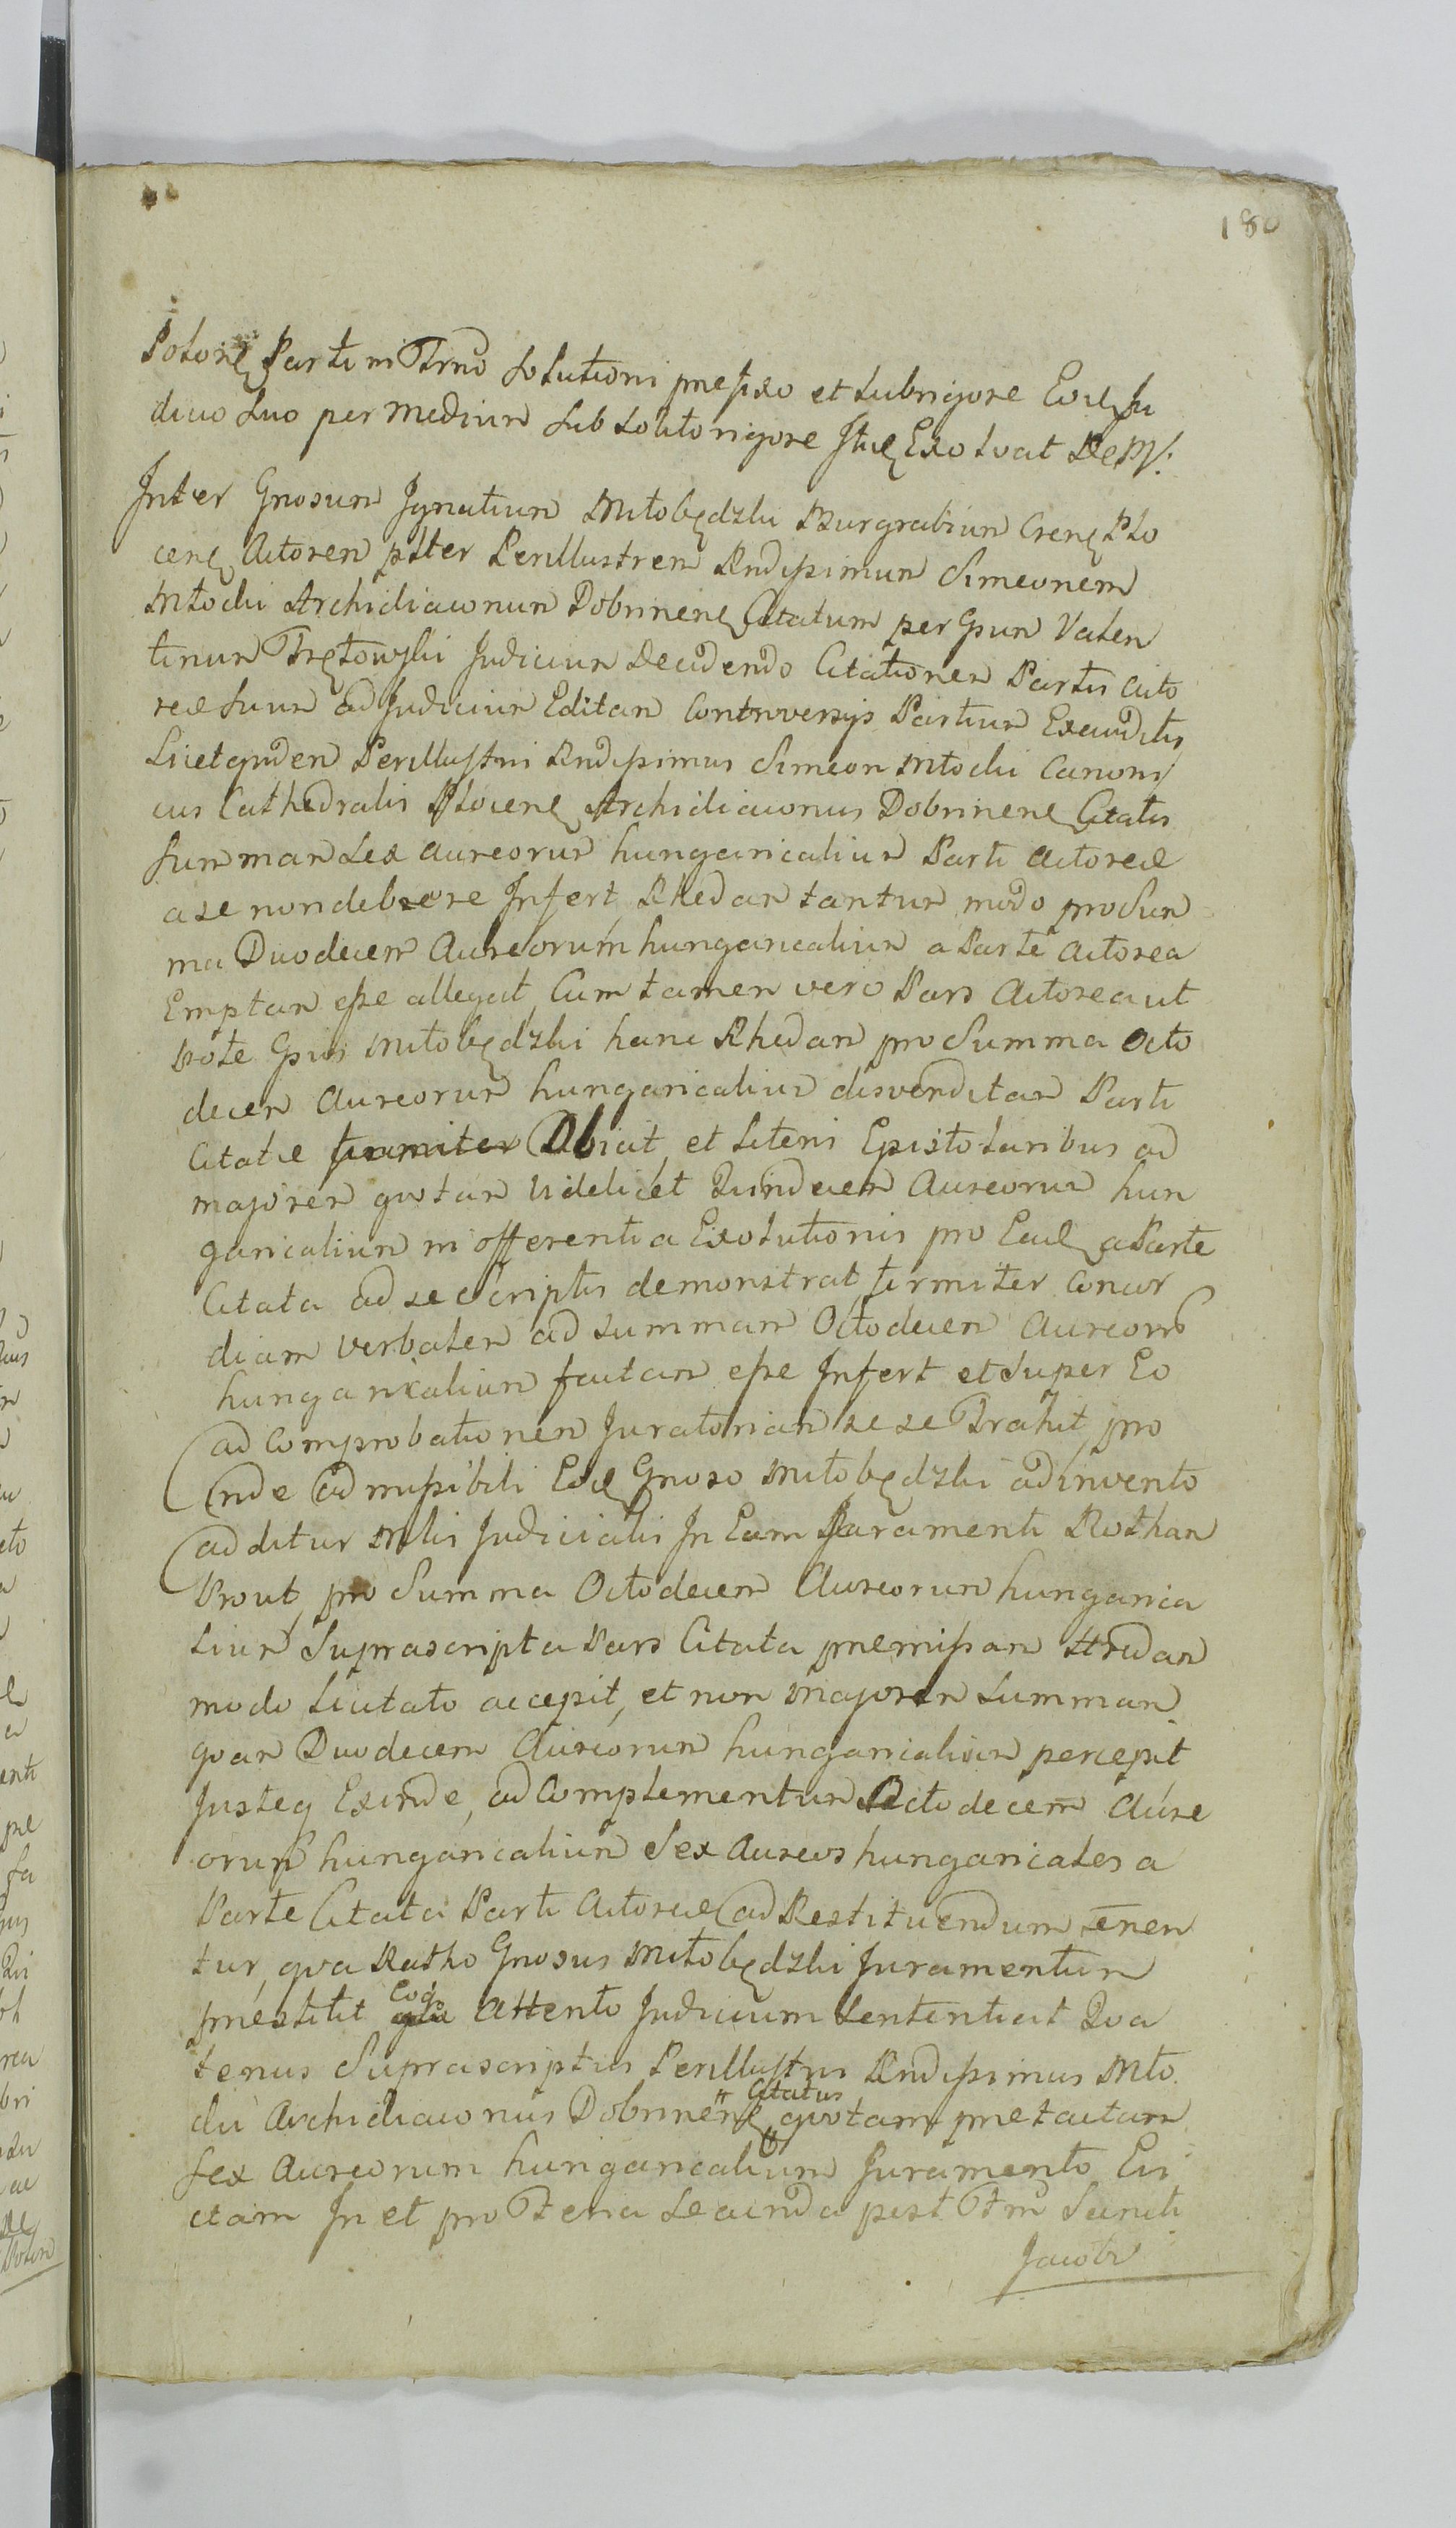 180
Polonę Parti in Trno Solutioni præfixo et sub rigore Eoię Ju
dicio suo per Medium sub solito rigore Jtię Exolvat DeM:
Inter Gnosum Ignatium Miłobędzki Burgrabium Crenę Plo
cenę Actorem pltter Perillustrem Rndissimum Simeonem
Młocki Archidiaconum Dobrinenę Citatum per Gsum Valen
tinum Trętowski Judicium Decidendo Citationem Partis Acto
reæ suum ad Judicium Editam Controversijs Partium Exauditis
Licet quidem Perillustris Rndissimus Simeon Młocki Canoni
cus Cathedralis Plocenę Archidiaconus Dobrinenę Citatus
summam sex aureorum hungaricalium Parti Actoreæ
a se non debere Infert, Rhedam tantum modo pro Sum
ma Duodecem Aureorum hungaricalium a Parte Actorea
Emptam esse allegat, Cum tamen vero Pars Actorea ut
pote Gsus Miłobędzki hanc Rhedam pro Summa Octo
decem Aureorum hungaricalium disvenditam Parti
Citatæ firmiter Obicit, et literis Epistolaribus ad
majorem quotam videlicet Quindecem Aureorum hun
garicalium in offerentia Exolutionis pro Eadę a Parte
Citata ad se scriptis demonstrat, firmiter concor
diam verbalem ad summam Octodecem Aureorum
hungaricalium factam esse Infert et super Eo
ad comprobationem Juratoriam sese Trahit, pro
inde admissibili Eoię Gnoso Miłobędzki adinvento
additur Mlis Judicialis In Eam Juramenti Rotham
Prout pro Summa Octodecem Aureorum hungarica
lium Suprascripta Pars Citata præmissam Hredam
modo licitato accepit, et non majorem summam
quam Duodecem Aureorum hungaricalium percepit
Justeq Exinde, ad Complementum Octodecem Aure
orum hungaricalium Sex Aureos hungaricales a
Parte Citata Parti Actoreæ ad Restituendum tenen
tur, qva Ratho Gnosus Miłobędzki Juramentum
præstitit Eoq. Attento Judicium Sententiat Qva
tenus Suprascriptus Perillustris Rndissimus Mło
cki Archidiaconus Dobrinenę Citatus quotam prætactam
sex Aureorum hungaricalium Juramento Evi
ctam In et pro Feria secunda post Ftm Sancti
Jacobi